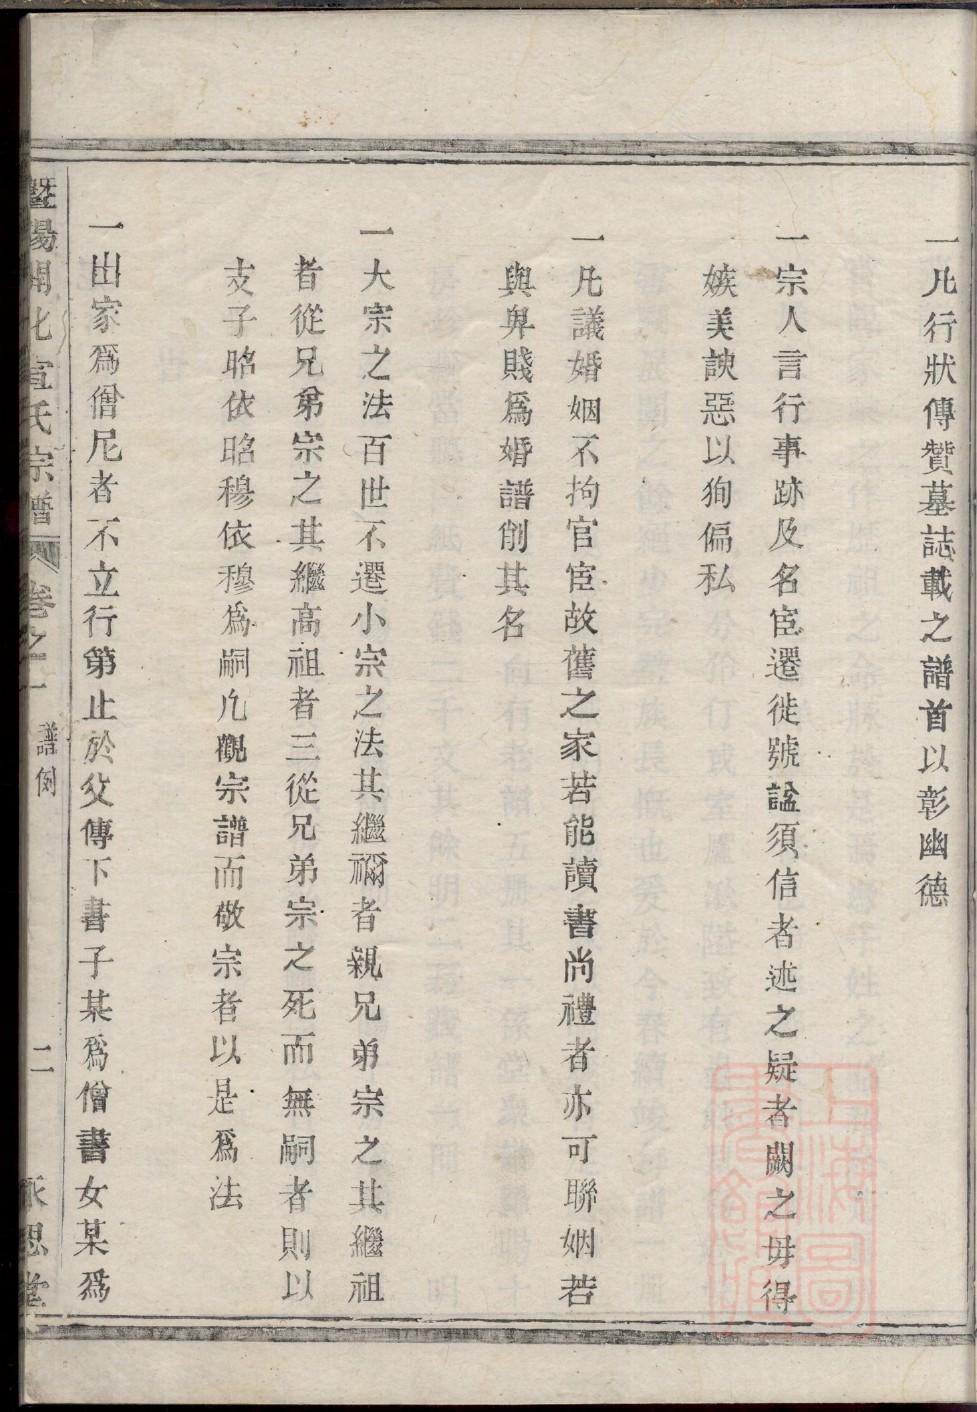 一凡行狀傳贊墓誌載之譜首以彰幽德
一宗人言行事跡及名宦遷徙號謚須信者述之疑者闕之毋得
嫉美諛惡以狥偏私
一凡議婚姻不拘官宦故舊之家若能讀書尚禮者亦可聯姻若
與卑賤爲婚譜削其名
一大宗之法百世不遷小宗之法其繼禰者親兄弟宗之其繼祖
者從兄弟宗之其繼高祖者三從兄弟宗之死而無嗣者則以
支子昭依昭穆依穆爲嗣凢觀宗譜而敬宗者以是爲法
一出家爲僧尼者不立行第止於父傳下書子某爲僧書女某爲
暨陽開化宣氏宗譜 卷之一 譜例 二 永思堂
上海圖書館藏